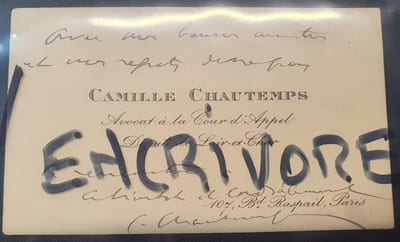 Avec mes bonnes amitiés
et mes regrets de ne pas
CAMILLE CHAUTEMPS
Avocat à la Cour d'Appel
Député de Loir-et-Cher
ENCRIVORE
cordialement
107, Bd Raspail, Paris
C. Chautemps